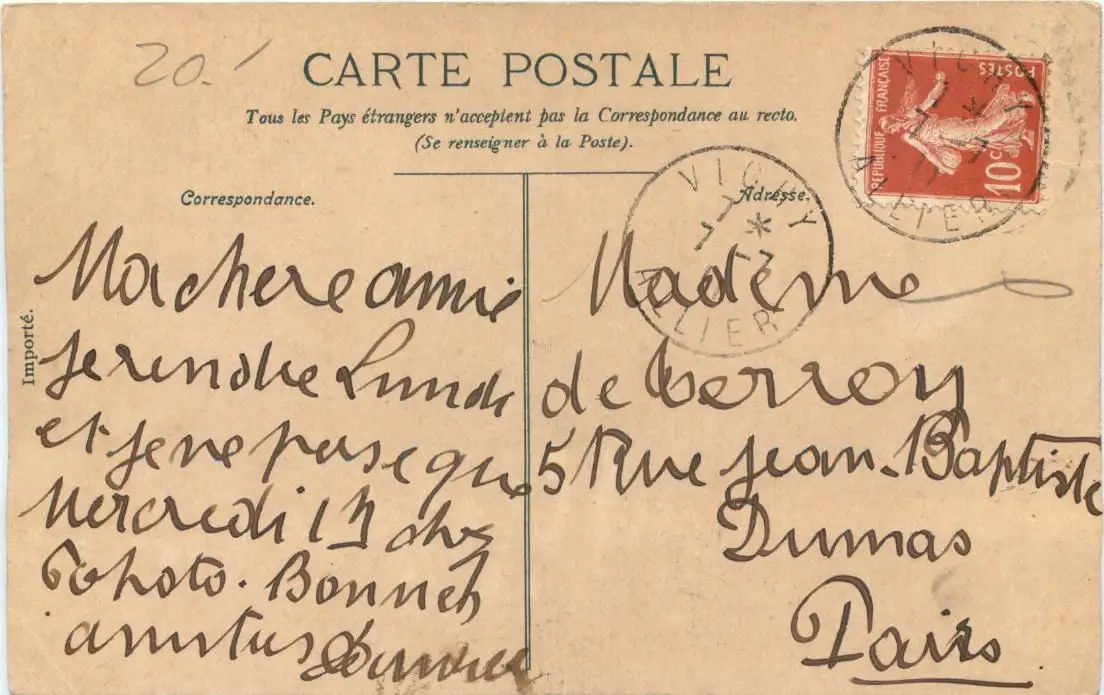 20.
CARTE POSTALE
Tous les Pays étrangers n'acceptent pas la Correspondance au recto.
(Se renseigner à la Poste).
Correspondance.
Adresse.
Importé.
RÉPUBLIQUE FRANÇAISE
POSTES
10c
VICHY
ALLIER
VICHY
7 *
7 -7
ALLIER
Ma chere amie
Je rendre Lundi
et je ne puse que
Mercredi 13 chez
Photo. Bonnet
amities
Madame
de Cerroy
5 Rue Jean-Baptiste
Dumas
Paris